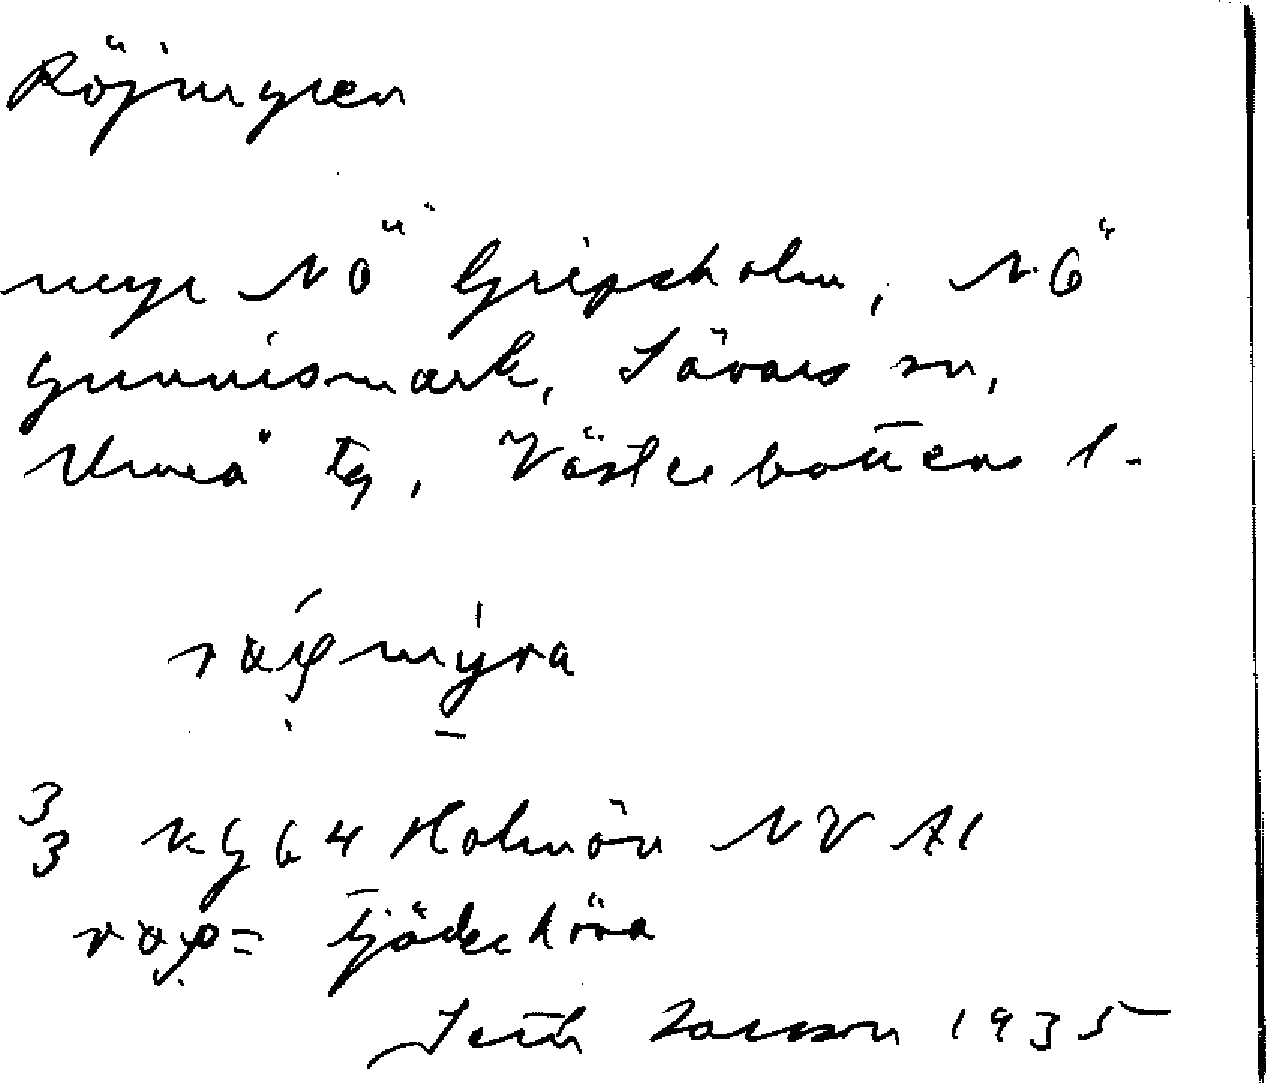 Röjmyren
myr NÖ Gripsholm, NÖ
Gunnismark, Sävars sn,
Umeå tg, Västerbottens l.
mýra
3/3 kg 64 Holmön NV A1
= tjäderhöna
Seth Larsson 1935